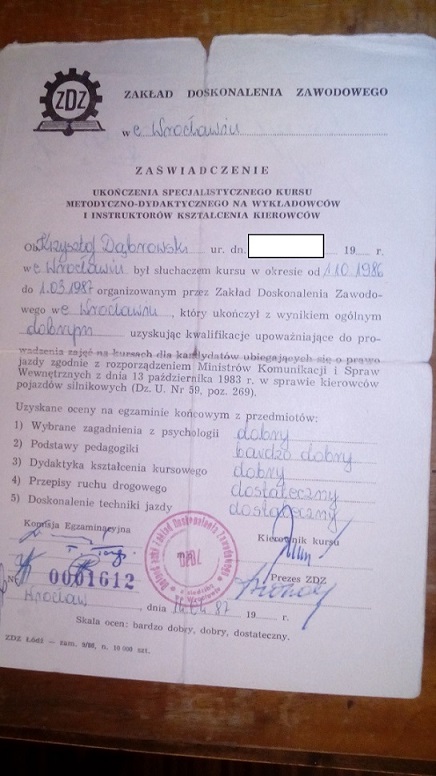 ZDZ
ZAKŁAD DOSKONALENIA ZAWODOWEGO
we Wrocławiu
ZAŚWIADCZENIE
UKOŃCZENIA SPECJALISTYCZNEGO KURSU
METODYCZNO-DYDAKTYCZNEGO NA WYKŁADOWCÓW
I INSTRUKTORÓW KSZTAŁCENIA KIEROWCÓW
Ob. Krzysztof Dąbrowski ur. dn. 19 r.
we Wrocławiu był słuchaczem kursu w okresie od 1.10.1986
do 1.03.1987 organizowanym przez Zakład Doskonalenia Zawodo-
wego we Wrocławiu, który ukończył z wynikiem ogólnym
dobrym uzyskując kwalifikacje upoważniające do pro-
wadzenia zajęć na kursach dla kandydatów ubiegających się o prawo
jazdy zgodnie z rozporządzeniem Ministrów Komunikacji i Spraw
Wewnętrznych z dnia 13 października 1983 r. w sprawie kierowców
pojazdów silnikowych (Dz. U. Nr 59, poz. 269).
Uzyskane oceny na egzaminie końcowym z przedmiotów:
1) Wybrane zagadnienia z psychologii dobry
2) Podstawy pedagogiki bardzo dobry
3) Dydaktyka kształcenia kursowego dobry
4) Przepisy ruchu drogowego dostateczny
5) Doskonalenie techniki jazdy dostateczny
Komisja Egzaminacyjna
Kierownik kursu
Zakład Doskonalenia Zawodowego
Prezes ZDZ
Nr 0001612
Wrocław, dnia 87 19 r.
Skala ocen: bardzo dobry, dobry, dostateczny.
ZDZ Łódź — zam. 10 000 szt.